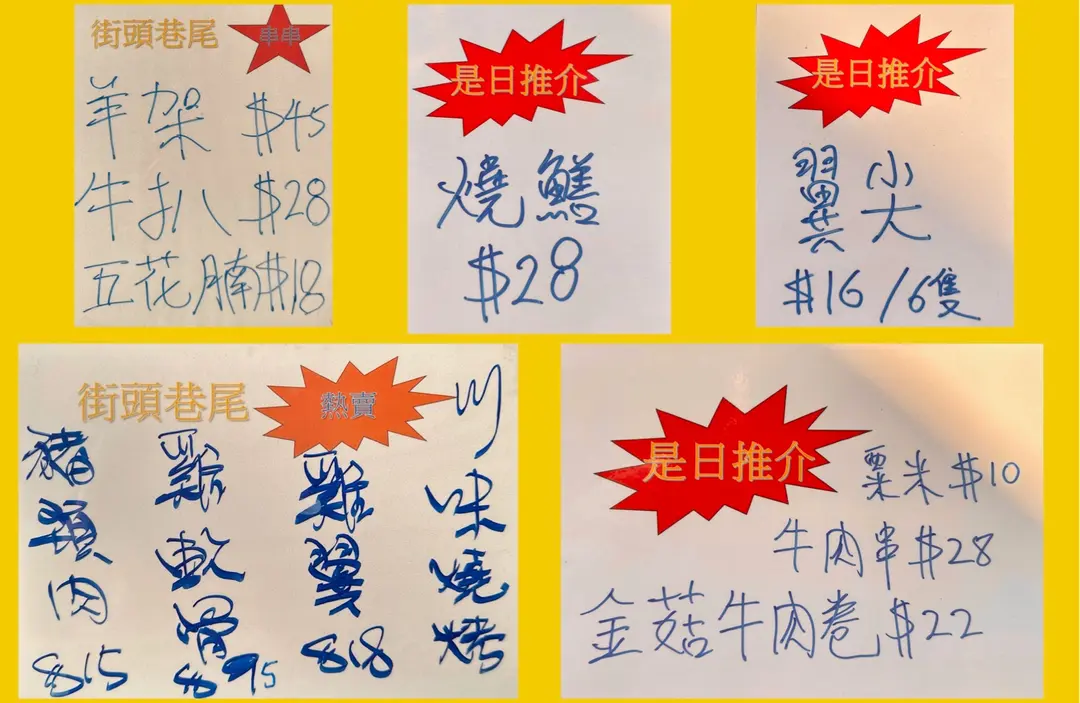 街頭巷尾 串串
羊架 $45
牛扒 $28
五花腩 $18
是日推介
燒鱔
$28
是日推介
翼尖
$16/6隻
街頭巷尾 熱賣
川味燒烤
豬頸肉 $15
雞軟骨
雞翼 $18
是日推介
粟米 $10
牛肉串 $28
金菇牛肉卷 $22